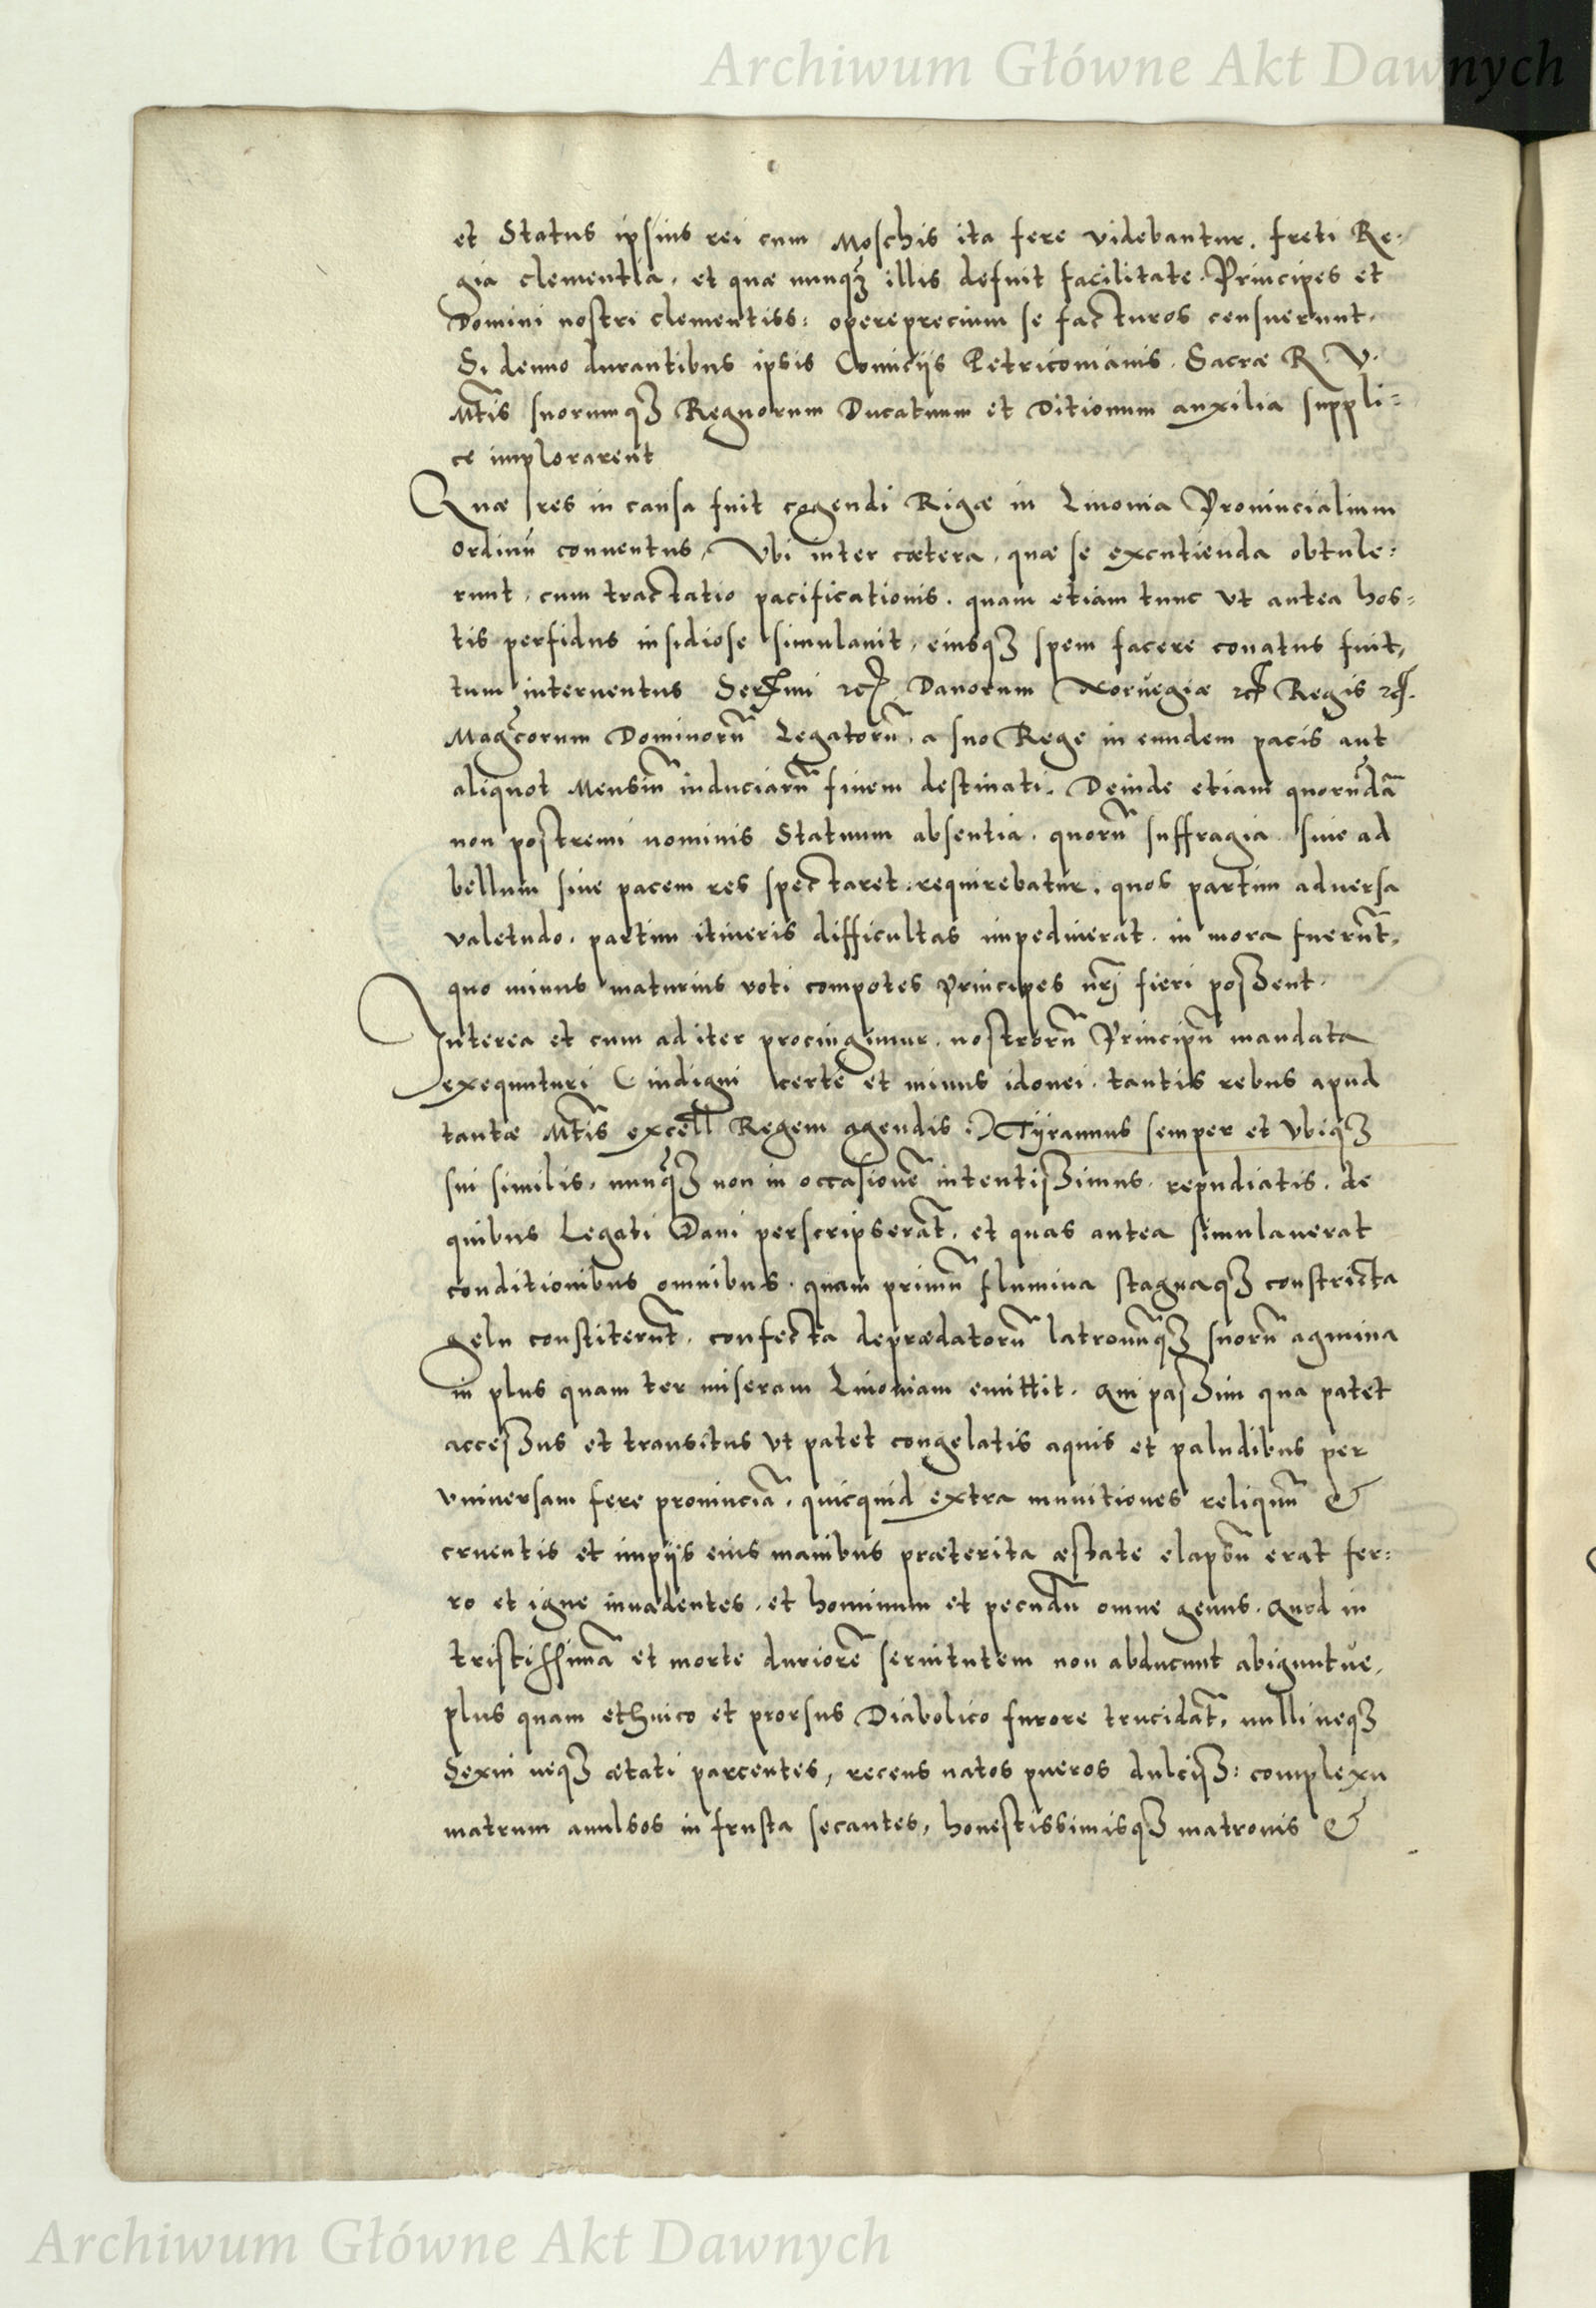 Archiwum Główne Akt Dawnych
et Status ipsius rei cum Moschis ita fere videbantur, freti Re-
gia clementia, et quæ nunqȝ illis defuit facilitate. Principes et
Domini nostri clementiss: operepretium se facturos censuerunt,
Si denuo durantibus ipsis Comicijs Petricouianis. Sacræ R. V.
Mtis suorumqȝ Regnorum Ducatuum et Ditionum auxilia suppli=
ce implorarent
Quæ res in causa fuit cogendi Rigæ in Liuonia Prouincialium
ordinū conuentus, Vbi inter cætera, quæ se excutienda obtule=
runt, cum tractatio pacificationis, quam etiam tunc vt antea hos=
tis perfidus insidiose simulauit, eiusqȝ spem facere conatus fuit,
tum interuentus Sermi etc. Danorum Noruegiæ etc. Regis etc.
Magcorum Dominorū Legatorū, a suo Rege in eundem pacis aut
aliquot Mensiū induciarū finem destinati. Deinde etiam quorūdā
non postremi nominis Statuum absentia, quorū suffragia siue ad
bellum siue pacem res spectaret, requirebatur, quos partim aduersa
valetudo, partim itineris difficultas impediuerat, in mora fuerūt,
quo minus maturius voti compotes Principes nrj fieri possent.
Interea et cum ad iter procingimur, nostrorū Principū mandata
exequuturi (indigni certe et minus idonei, tantis rebus apud
tantæ Mtis excell Regem agendis.) Tyrannus semper et vbiqȝ
sui similis, nunqȝ non in occasionē intentissimus, repudiatis, de
quibus Legati Dani perscripserāt, et quas antea simulauerat
conditionibus omnibus, quam primū flumina stagnaqȝ constricta
gelu constiterūt, confecta deprædatorū latronūqȝ suorū agmina
in plus quam ter miseram Liuoniam emittit. Qui passim qua patet
accessus et transitus vt patet congelatis aquis et paludibus per
vniuersam fere prouinciā, quicquid extra munitiones reliquū &
cruentis et impijs eius manibus præterita æstate elapsū erat fer=
ro et igne inuadentes, et hominum et pecudū omne genus, quod in
tristissimā et morte duriorē seruitutem non abducunt abiguntue,
plus quam ethnico et prorsus Diabolico furore trucidāt, nulli neqȝ
Sexui neqȝ ætati parcentes, recens natos pueros dulciss: complexu
matrum auulsos in frusta secantes, honestissimisqȝ matronis &
Archiwum Główne Akt Dawnych